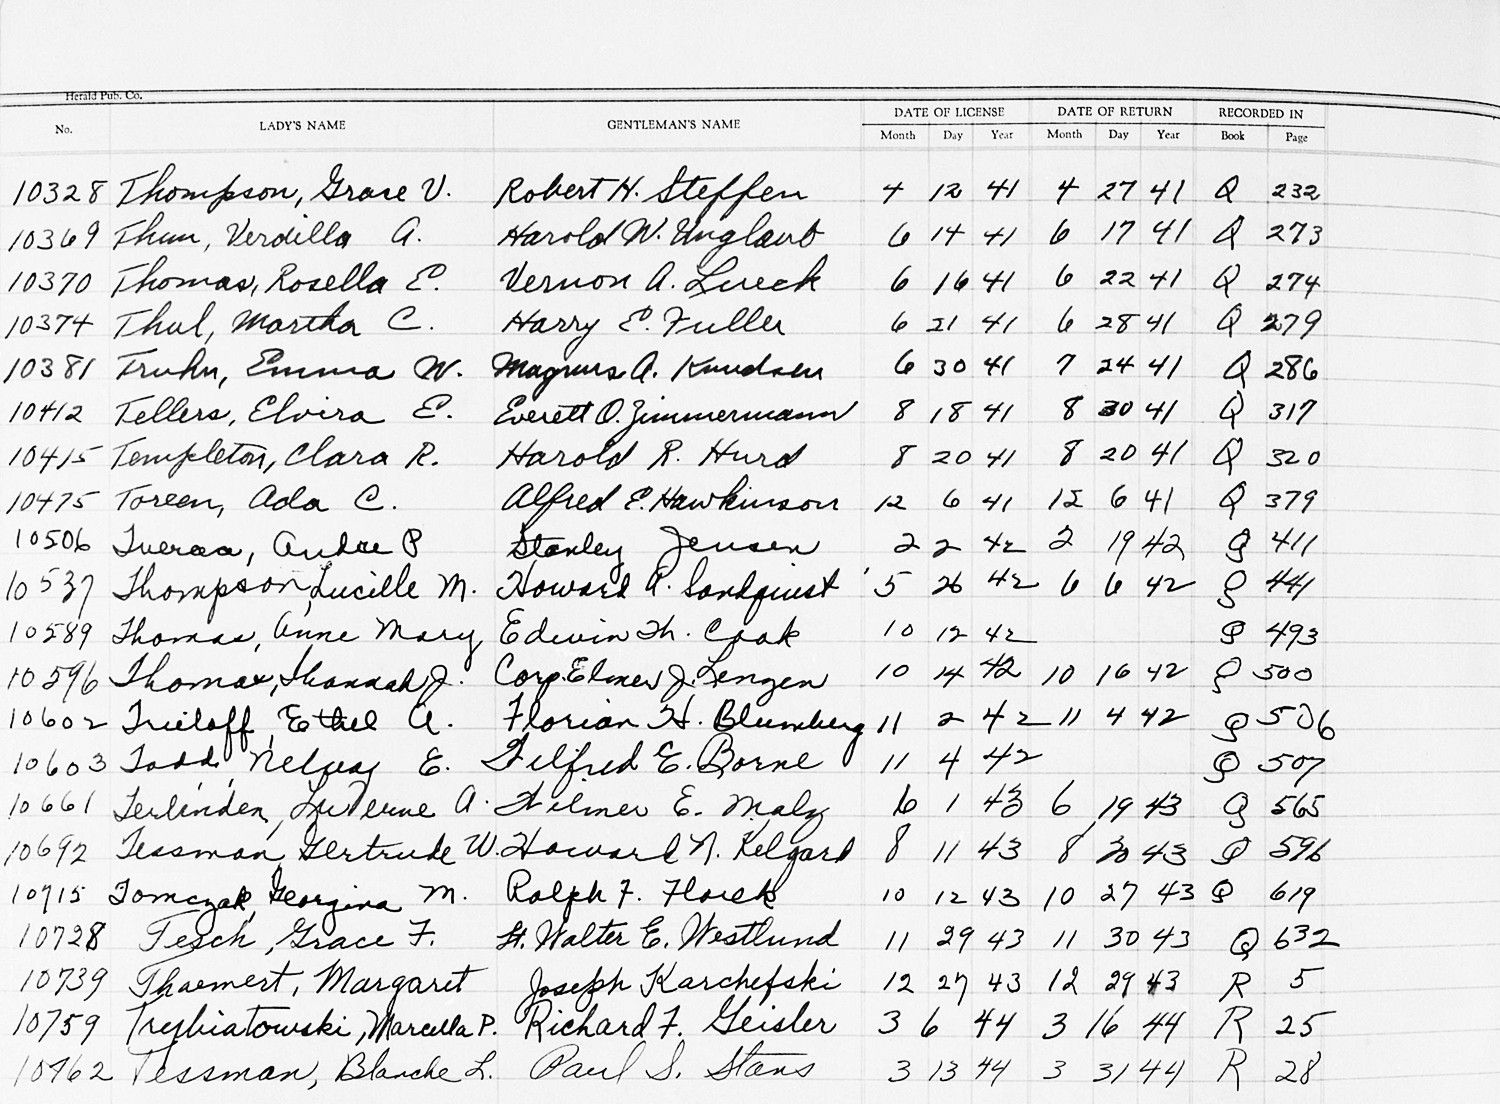 Herald Pub. Co.
No. LADY'S NAME GENTLEMAN'S NAME DATE OF LICENSE DATE OF RETURN RECORDED IN
Month Day Year Month Day Year Book Page
10328 Thompson, Grace V. Robert H. Steffen 4 12 41 4 27 41 Q 232
10369 Thun, Verdilla A. Harold W. Unglaub 6 14 41 6 17 41 Q 273
10370 Thomas, Rosella E. Vernon A. Lueck 6 16 41 6 22 41 Q 274
10374 Thul, Martha C. Harry E. Fuller 6 21 41 6 28 41 Q 279
10381 Truhn, Emma W. Magnus A. Knudsen 6 30 41 7 24 41 Q 286
10412 Tellers, Elvira E. Everett O. Zimmermann 8 18 41 8 30 41 Q 317
10415 Templeton, Clara R. Harold R. Hurd 8 20 41 8 20 41 Q 320
10475 Toreen, Ada C. Alfred E. Hawkinson 12 6 41 12 6 41 Q 379
10506 P Stanley Jensen 2 2 42 2 19 42 Q 411
10537 Thompson, Lucille M. Howard A. Sandquist 5 26 42 6 6 42 Q 441
10589 Thomas, Anne Mary Edwin Th. Cook 10 12 42 Q 493
10596 Thomas, Hannah J. Corp. Elmer J. Lengen 10 14 42 10 16 42 Q 500
10602 Trieloff, Ethel A. Florian H. Blumberg 11 2 42 11 4 42 Q 506
10603 Todd, E. Wilfred E. Borne 11 4 42 Q 507
10661 Terlinden, LaVerne A. Wilmer E. Maly 6 1 43 6 19 43 Q 565
10692 Tessman, Gertrude W. Howard N. Kelgard 8 11 43 8 20 43 Q 596
10715 Tomczak, Georgina M. Ralph F. Florek 10 12 43 10 27 43 Q 619
10728 Tesch, Grace F. Lt. Walter E. Westlund 11 29 43 11 30 43 Q 632
10739 Thaemert, Margaret Joseph Karchefski 12 27 43 12 29 43 R 5
10759 Trybiatowski, Marcella P. Richard F. Geisler 3 6 44 3 16 44 R 25
10762 Tessman, Blanche L. Paul S. Stans 3 13 44 3 31 44 R 28